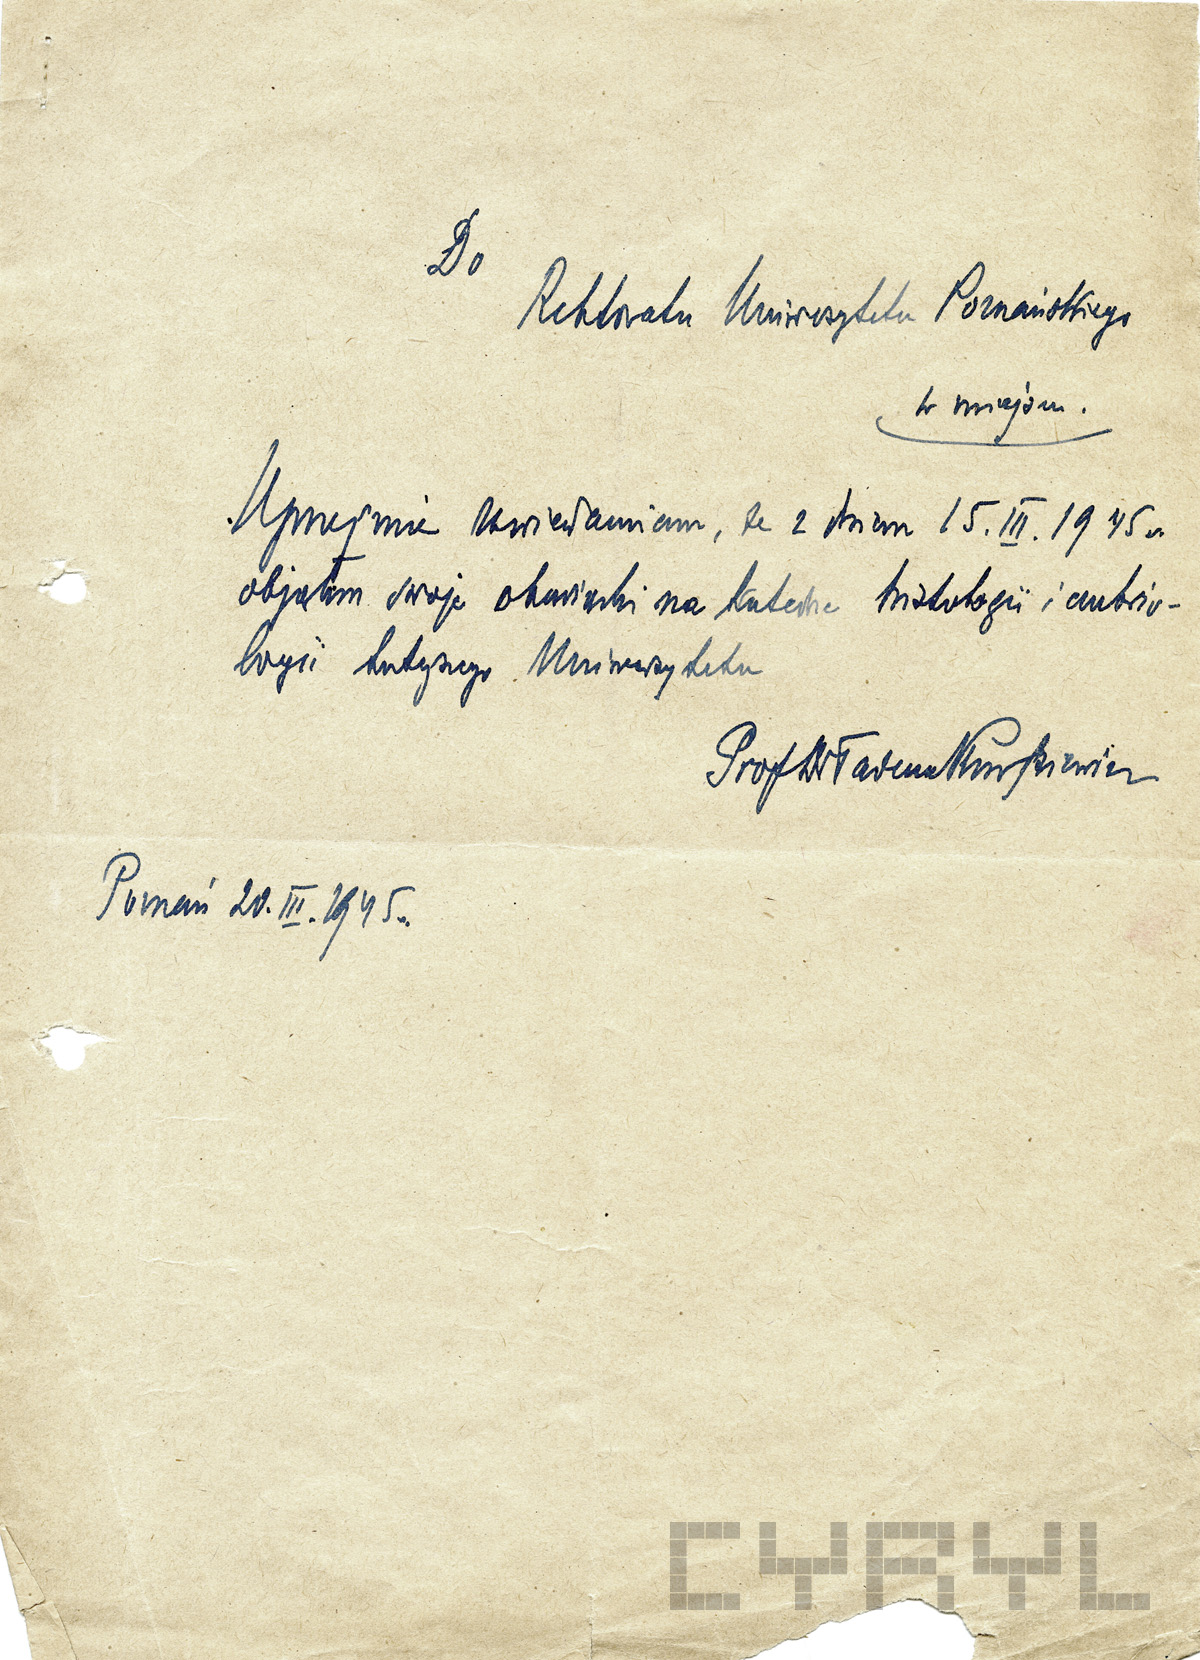 Do
Rektoratu Uniwersytetu Poznańskiego
w miejscu.
Uprzejmie zawiadamiam, że z dniem 15.III.1945 r.
objąłem swoje obowiązki na katedrze histologii i embrio-
logii tutejszego Uniwersytetu
Prof Dr Tadeusz Kurkiewicz
Poznań 20.III.1945 r.
CYRYL